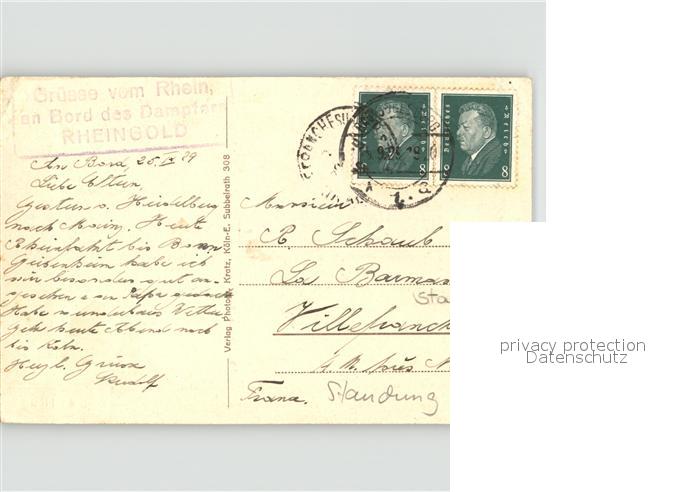 Grüsse vom Rhein,
an Bord des Dampfers
RHEINGOLD
An Bord, 26. IX 29
Liebe Eltern,
Gestern v. Heidelberg
nach Mainz. Heute
Rheinfahrt bis Bonn
habe ich
mir besonders gut an-
gesehen
Habe wunderbares Wetter
Geh heute Abend noch
bis Köln.
Herzl. Grüsse
Rudolf
Verlag Photo Kratz, Köln-E. Subbelrath 308
Deutsches Reich
8
Deutsches Reich
8
Monsieur
R. Schaub
La Barmas
Sta
Villefranch
près N
France.
Standung
privacy protection
Datenschutz